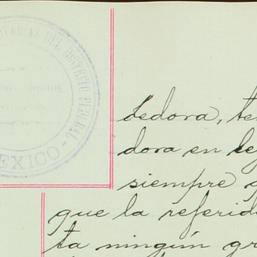 DEL DISTRITO FEDERAL - MEXICO
dedora, te
dora en le
siempre q
que la referid
ta ningún gr